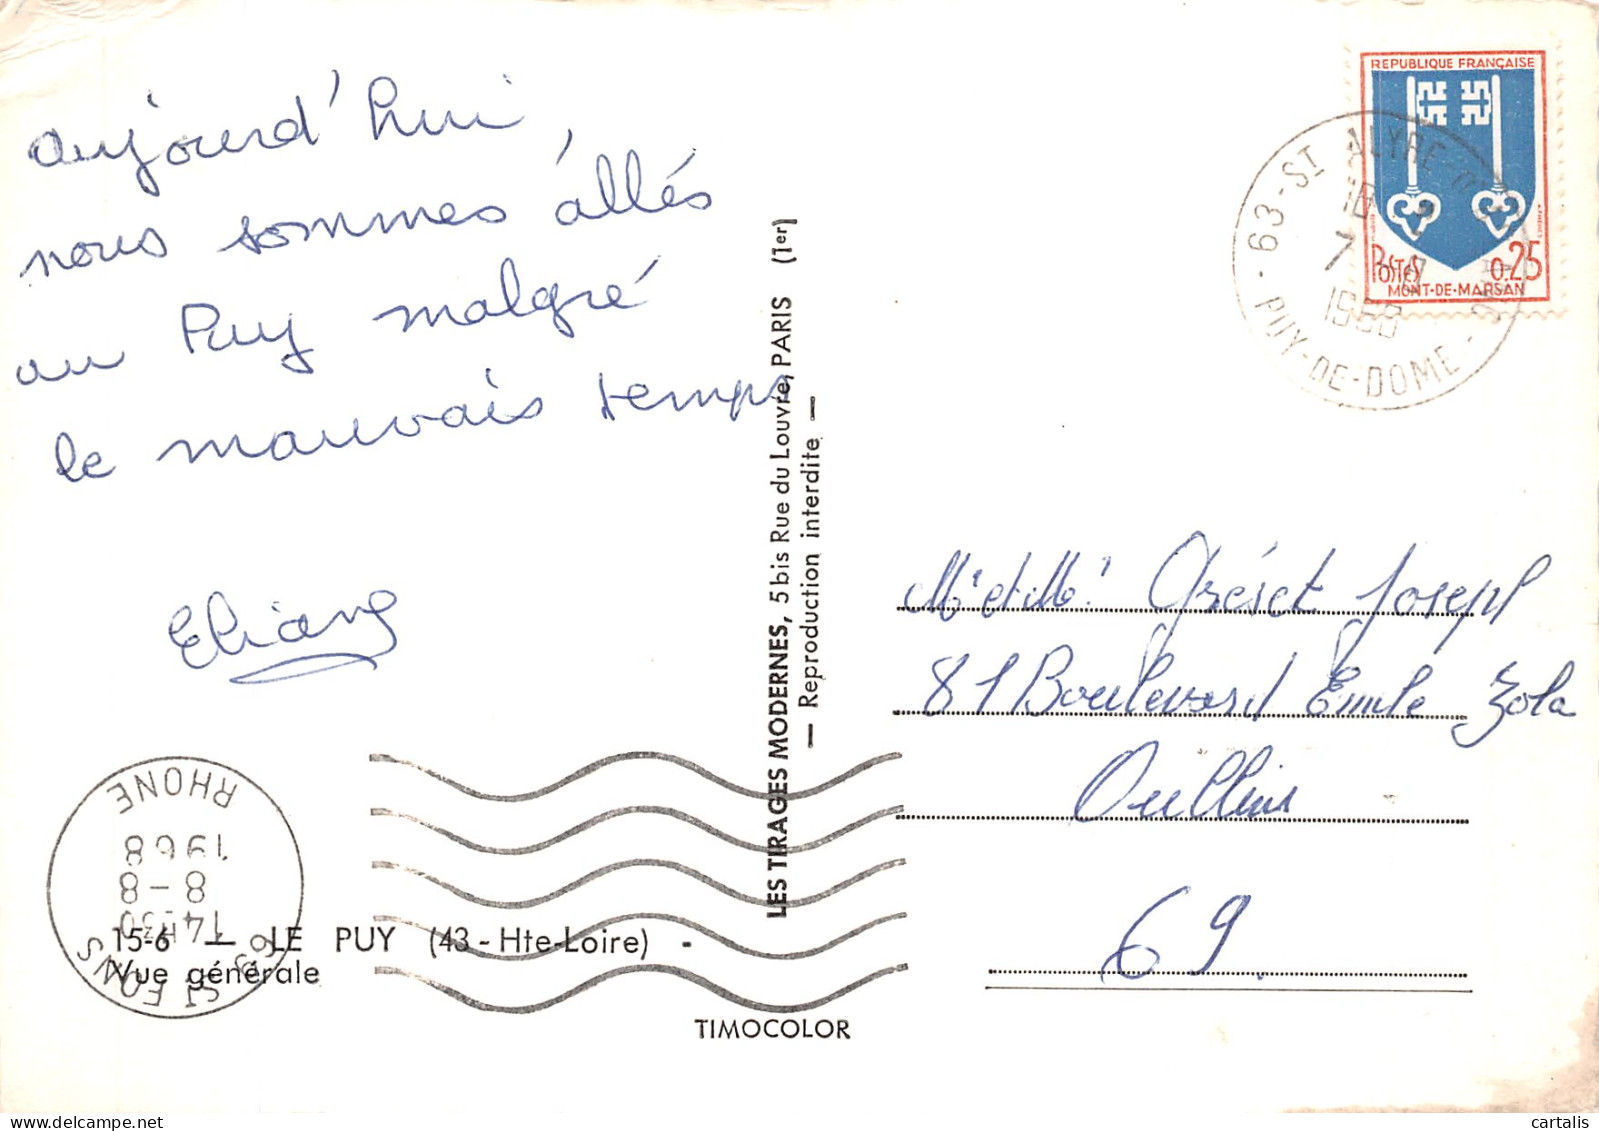 aujourd'hui,
nous sommes allés
au Puy malgré
le mauvais temps
Eliane
LES TIRAGES MODERNES, 5 bis Rue du Louvre, PARIS (1er)
— Reproduction interdite —
REPUBLIQUE FRANÇAISE
POSTES 0.25
MONT-DE-MARSAN
63 - ST ALYRE
7
1968
PUY-DE-DOME
Mr et Mme Gréset Joseph
81 Boulevard Emile Zola
Oullins
69.
RHONE
1968
8-8
14H30
69 ST FONS
15-6 — LE PUY (43 - Hte-Loire) -
Vue générale
TIMOCOLOR
cartalis